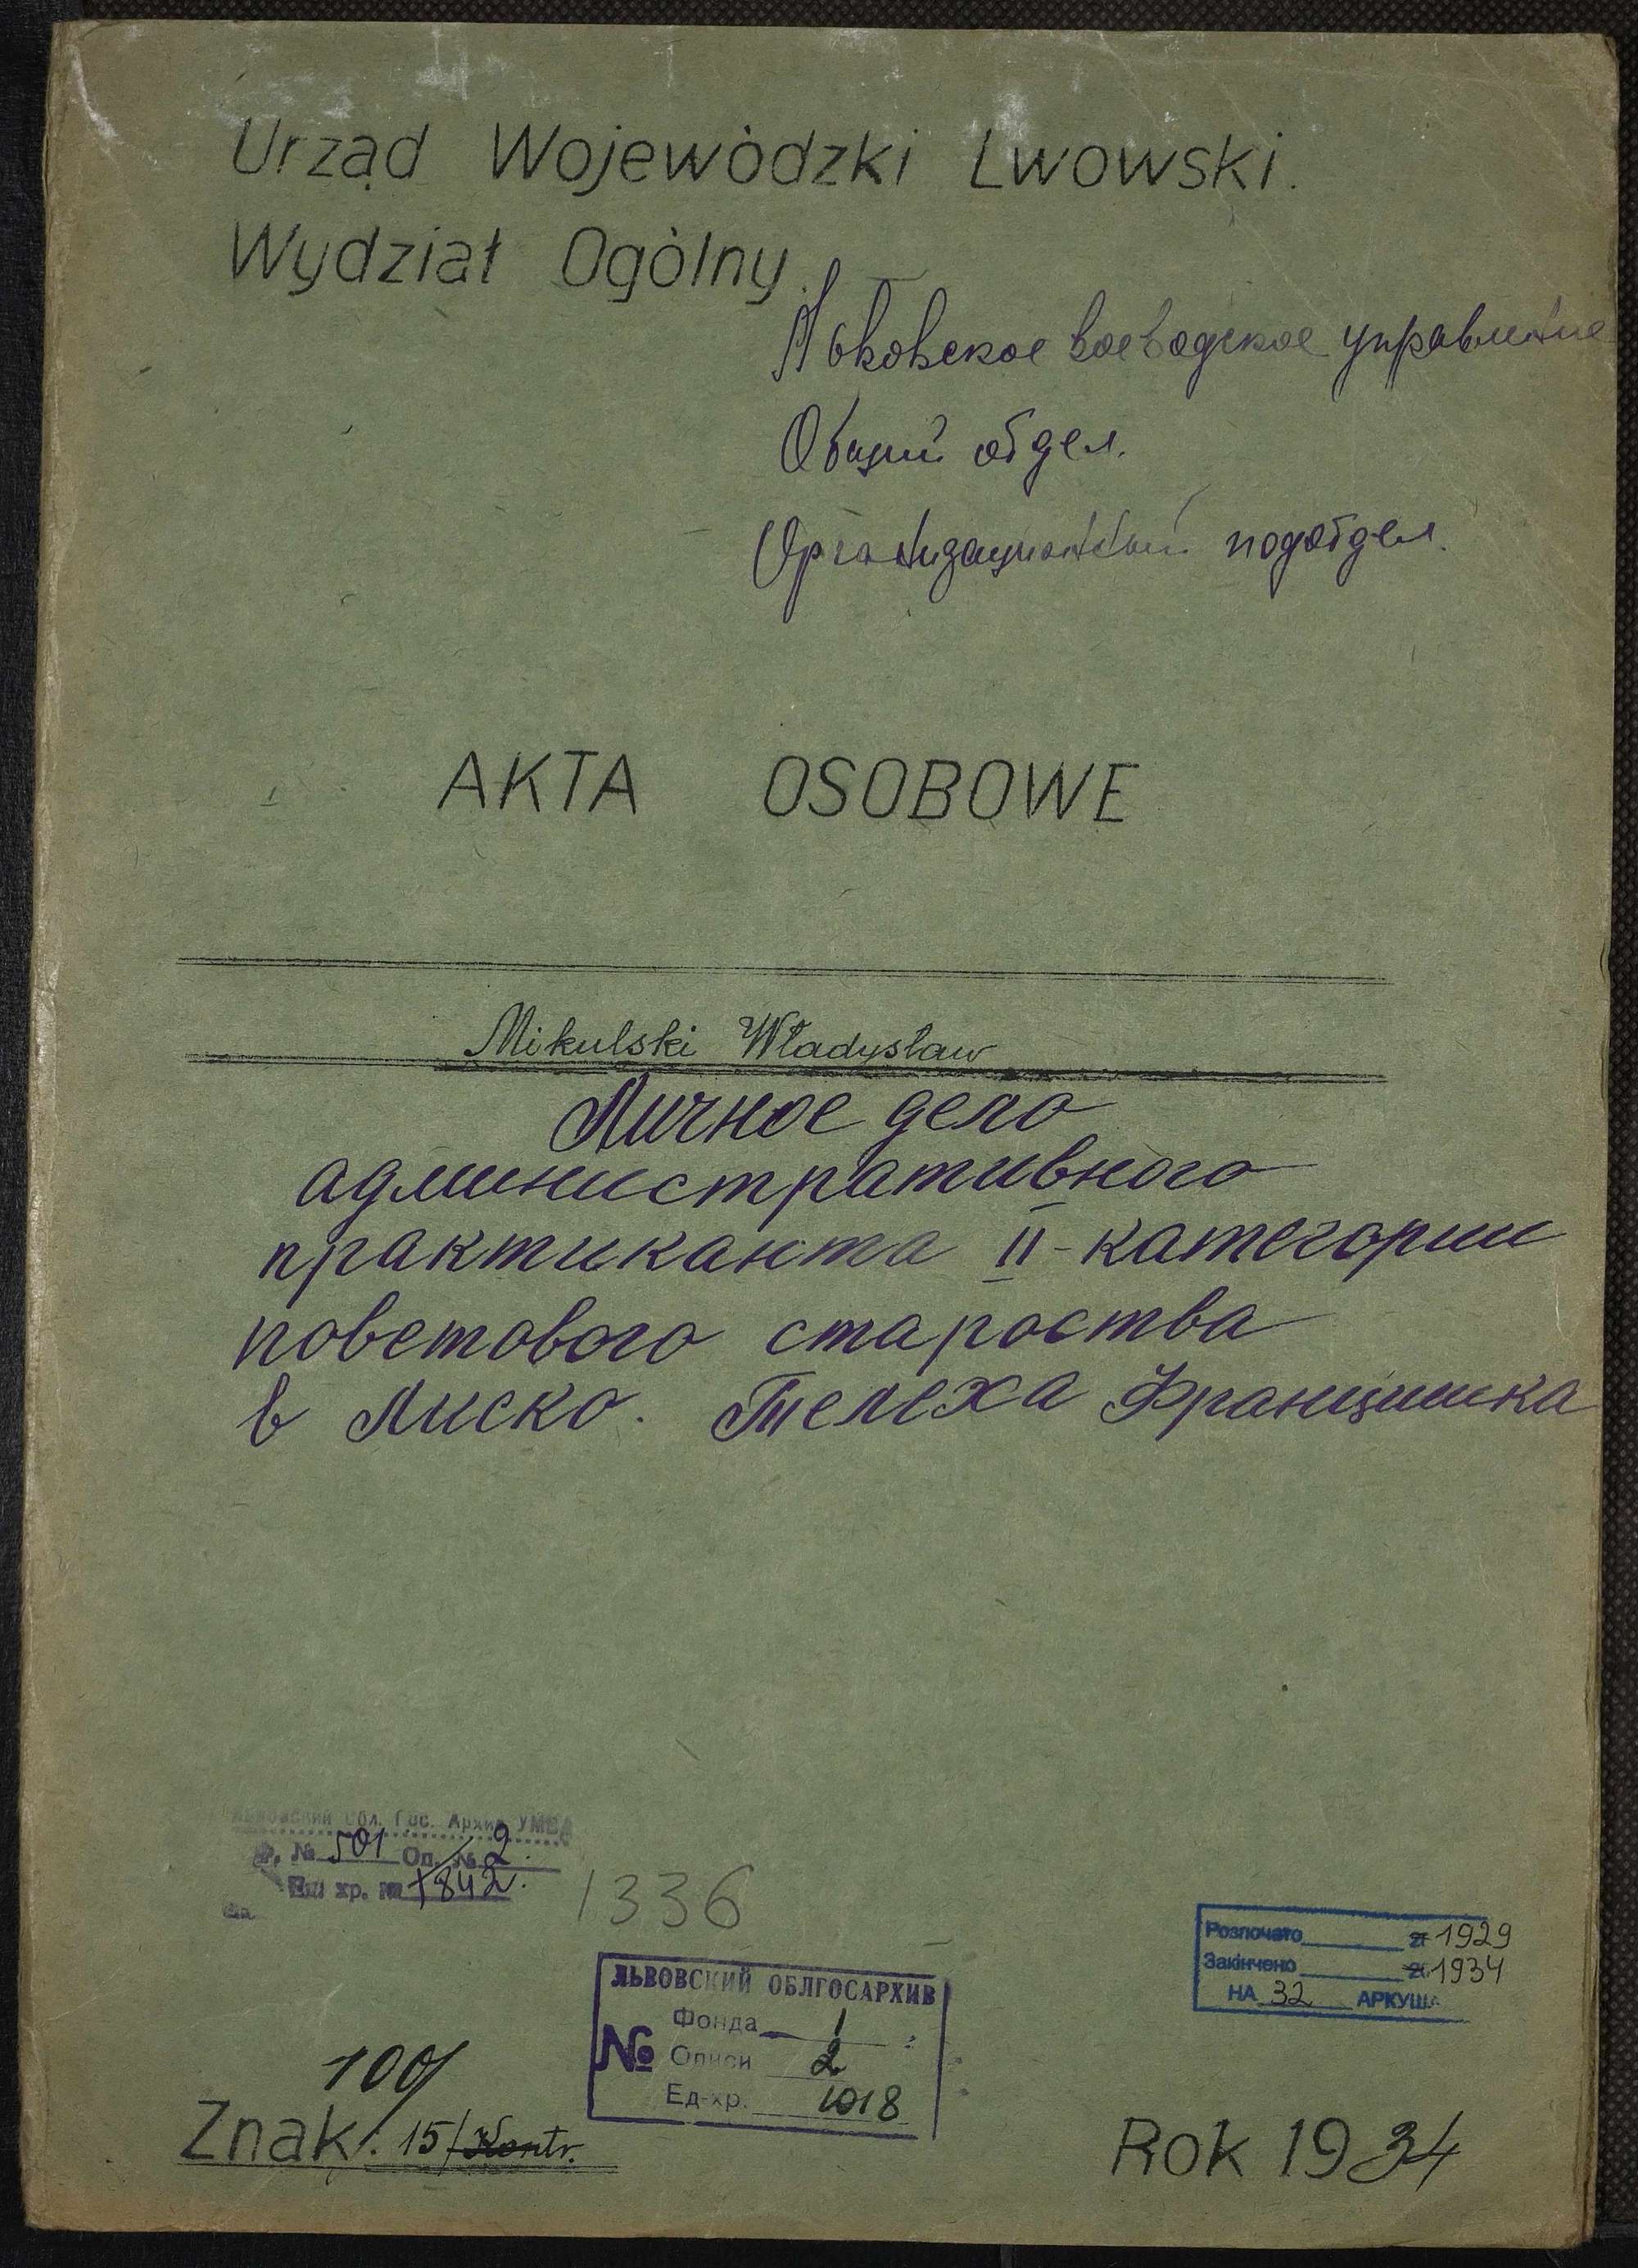 Urząd Wojewódzki Lwowski.
Wydział Ogólny.
Львовское воеводское управление
Общий отдел.
Организационный подотдел.
AKTA OSOBOWE
Mikulski Władysław
Личное дело
административного
практиканта II-категории
поветового староства
в Лиско. Телеха Францишка
Львовский Обл. Гос. Архив УМВД
Ф. № 501 Оп. № 2.
Ед. хр. № 1842.
1336
Розпочато 1929
Закінчено 1934
НА 32 АРКУШ
ЛЬВОВСКИЙ ОБЛГОСАРХИВ
Фонда 1
№ Описи 2
Ед-хр. 1018
100/
Znak: 15/Kontr.
Rok 1934